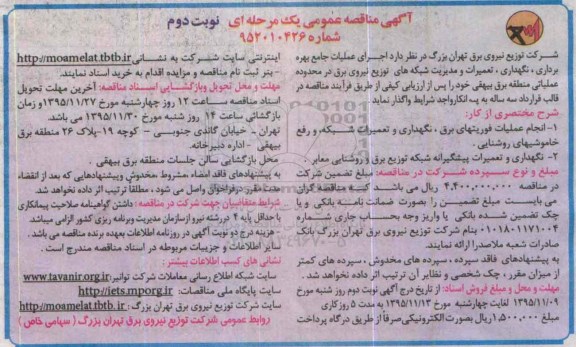 آگهی مناقصه عمومی یک مرحله ای نوبت دوم
شماره ۹۵۲۰۱۰۴۲۶
شرکت توزیع نیروی برق تهران بزرگ در نظر دارد اجرای عملیات جامع بهره
برداری ، نگهداری ، تعمیرات و مدیریت شبکه های توزیع نیروی برق در محدوده
عملیاتی منطقه برق بیهقی خود را پس از ارزیابی کیفی از طریق فرآیند مناقصه در
قالب قرارداد سه ساله به پیمانکار واجد شرایط واگذار نماید
شرح مختصری از کار:
۱- انجام عملیات فوریتهای برق ، نگهداری و تعمیرات شبکه و رفع
خاموشیهای روشنایی .
۲- نگهداری و تعمیرات پیشگیرانه شبکه توزیع برق و روشنایی معابر .
مبلغ و نوع سپرده شرکت در مناقصه: مبلغ تضمین شرکت
در مناقصه ۴,۴۰۰,۰۰۰,۰۰۰ ریال می باشد که مناقصه گران
می بایست مبلغ تضمین را بصورت ضمانت نامه بانکی و یا
چک تضمین شده بانکی یا واریز وجه بحساب جاری شماره
۰۱۰۱۸۰۱۱۷۱۰۰۴ بنام شرکت توزیع نیروی برق تهران بزرگ بانک
صادرات شعبه ملاصدرا ارائه نمایند.
به پیشنهادهای فاقد سپرده ، سپرده های مخدوش ، سپرده های کمتر
از میزان مقرر ، چک شخصی و نظایر آن ترتیب اثر داده نخواهد شد.
مهلت و محل و مبلغ فروش اسناد: از تاریخ درج آگهی نوبت دوم روز شنبه مورخ
۱۳۹۵/۱۱/۰۹ لغایت چهارشنبه مورخ ۱۳۹۵/۱۱/۱۳ به مدت ۵ روز کاری
مبلغ ۱,۵۰۰,۰۰۰ ریال بصورت الکترونیکی صرفاً از طریق درگاه پرداخت
اینترنتی سایت شرکت به نشانی http://moamelat.tbtb.ir
- بنر ثبت نام مناقصه و مزایده اقدام به خرید اسناد نمایند.
مهلت و محل تحویل وبازگشایی اسناد مناقصه: آخرین مهلت تحویل
اسناد مناقصه ساعت ۱۲ روز چهارشنبه مورخ ۱۳۹۵/۱۱/۲۷ و زمان
بازگشائی ساعت ۱۴ روز شنبه مورخ ۱۳۹۵/۱۱/۳۰ می باشد.
تهران - خیابان گاندی جنوبی - کوچه ۱۹- پلاک ۲۶ منطقه برق
بیهقی - اداره دبیرخانه.
محل بازگشایی سالن جلسات منطقه برق بیهقی .
به پیشنهادهای فاقد امضاء ،مشروط ،مخدوش وپیشنهادهایی که بعد از انقضاء
مدت مقرر درفراخوان واصل می شود ، مطلقا ترتیب اثر داده نخواهد شد.
شرایط متقاضیان جهت شرکت در مناقصه: داشتن گواهینامه صلاحیت پیمانکاری
با حداقل پایه ۴ دررشته نیرو ازسازمان مدیریت وبرنامه ریزی کشور الزامی میباشد
- هزینه درج دو نوبت آگهی در روزنامه اطلاعات بعهده برنده مناقصه می باشد.
سایر اطلاعات و جزییات مربوطه در اسناد مناقصه مندرج است .
نشانی های کسب اطلاعات بیشتر :
سایت شبکه اطلاع رسانی معاملات شرکت توانیر: www.tavanir.org.ir
سایت پایگاه ملی مناقصات: http://iets.mporg.ir
سایت شرکت توزیع نیروی برق تهران بزرگ : http://moamelat.tbtb.ir
روابط عمومی شرکت توزیع نیروی برق تهران بزرگ ( سهامی خاص )